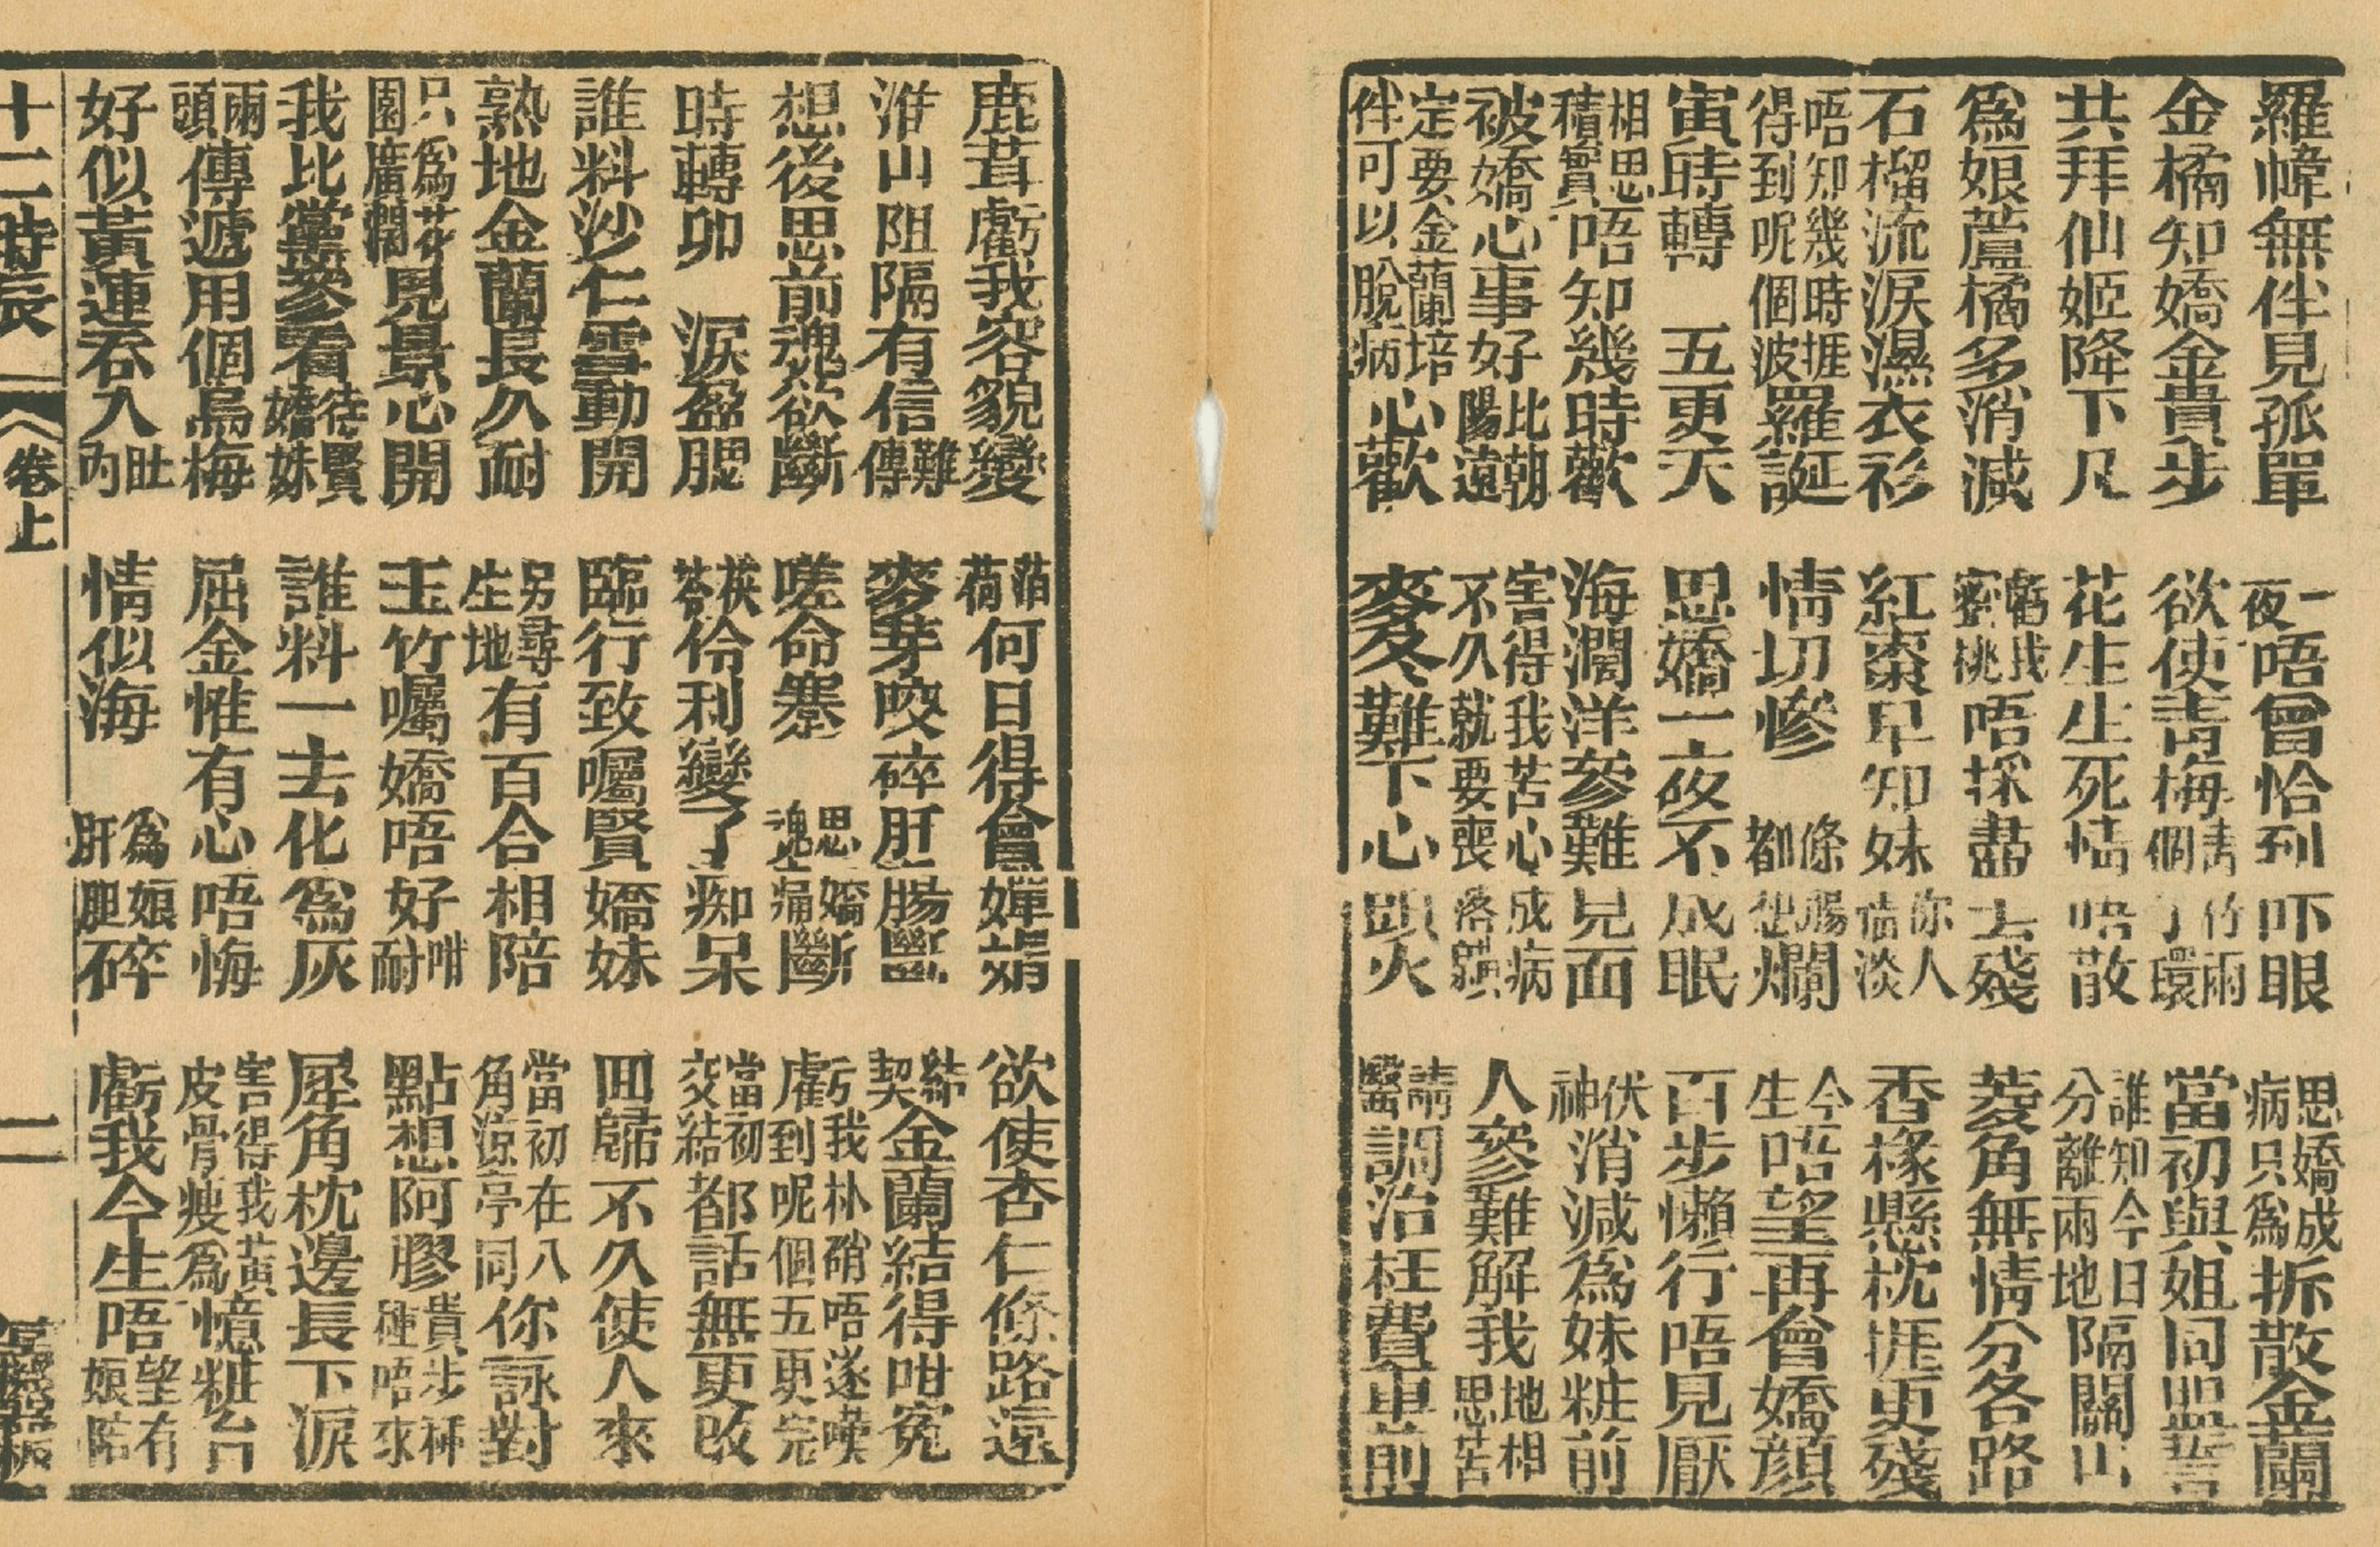 羅幃無伴見孤單　一夜唔曾恰到吓眼　思嬌成病只為拆散金蘭
金橘知嬌金貴步　欲使青梅青竹兩個丫環　當初與姐同盟誓
共拜仙姬降下凡　花生生死情唔散　誰知今日分離兩地隔關山
為娘蘆橘多消減　虧我蜜桃唔採盡去殘　菱角無情分各路
石榴流淚濕衣衫　紅棗早知妹你人情淡　香櫞懸枕捱更殘
唔知幾時捱得到呢個波羅誕　情切慘　條腸都想爛　今生唔望再會嬌顏
寅時轉　五更天　思嬌一夜不成眠　百步懶行唔見厭
相思積實唔知幾時歡　海濶洋參難見面　伏神消減為妹粧前
被嬌心事好比朝陽遠　害得我苦心成病不久就要喪落　人參難解我地相思苦
定要金蘭培伴可以脫病心歡　麥冬難下心頭火　請醫調治枉費車前
鹿茸虧我容貌變　箔荷何日得會嬋娟　欲使杏仁條路遠
淮山阻隔有信難傳　麥芽咬碎肝腸斷　結契金蘭結得咁寃
想後思前魂欲斷　嗟命蹇　思嬌魂痛斷　虧我朴硝唔遂嘆到呢個五更完
時轉卯　淚盈腮　茯苓伶利變了痴呆　當初交結都話無更改
誰料沙仁雪動開　臨行致囑賢嬌妹　回歸不久使人來
熟地金蘭長久耐　另尋生地有百合相陪　當初在八角涼亭同你詠對
只為花園廣濶見景心開　玉竹囑嬌唔好咁耐　點想阿膠貴步唔來
我比黨參看待賢嬌妹　誰料一去化為灰　犀角枕邊長下淚
兩頭傳遞用個烏梅　屈金惟有心唔悔　害得我黃皮骨瘦為憶粧台
好似黃連吞入肚內　情似海　為娘肝胆碎　虧我今生唔望有娘陪
十二時辰　卷上　二